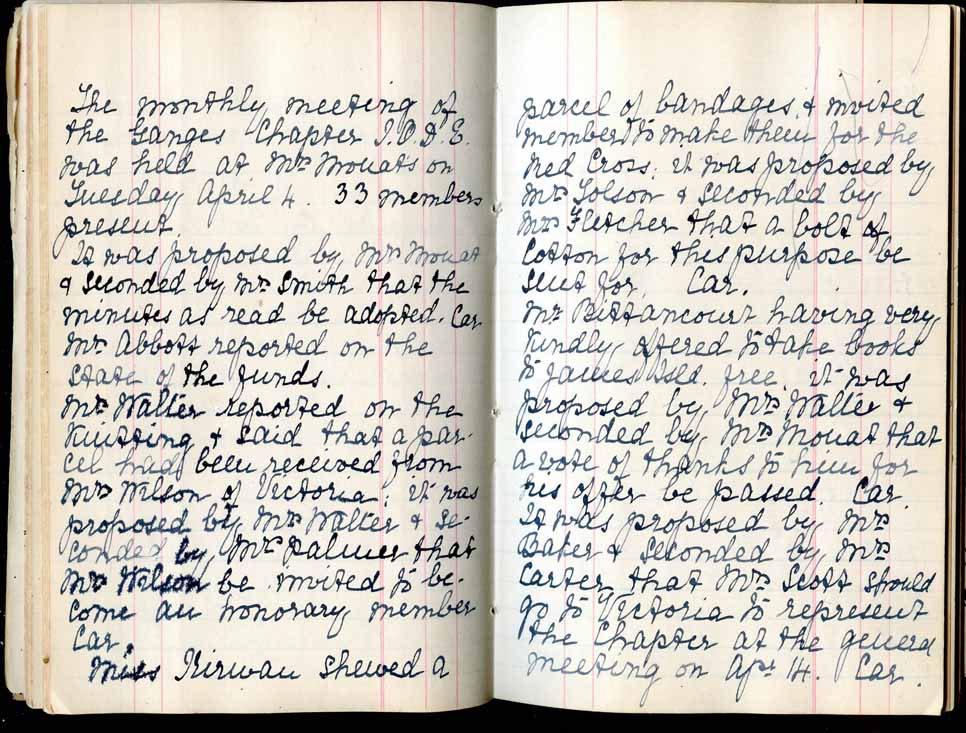 The monthly meeting of
the Ganges Chapter I.O.D.E.
was held at Mrs Mouats on
Tuesday April 4. 33 members
present.
It was proposed by Mrs Mouat
& seconded by Mrs Smith that the
minutes as read be adopted. Car
Mrs Abbott reported on the
state of the funds.
Mrs Walter reported on the
Knitting & said that a par-
cel had been received from
Mrs Wilson of Victoria; it was
proposed by Mrs Walter & se-
conded by Mrs Palmer that
Mrs Wilson be invited to be-
come an honorary member
Car.
Miss Kirwan shewed a
parcel of bandages & invited
members to make them for the
Red Cross. it was proposed by
Mrs Tolson & seconded by
Mrs Fletcher that a bolt of
cotton for this purpose be
sent for. Car.
Mr Bittancourt having very
kindly offered to take books
to James Isld. free, it was
proposed by Mrs Walter &
seconded by Mrs Mouat that
a vote of thanks to him for
his offer be passed. Car
It was proposed by Mrs
Baker & seconded by Mrs
Carter that Mrs Scott should
go to Victoria to represent
the Chapter at the general
meeting on Apr 14. Car.